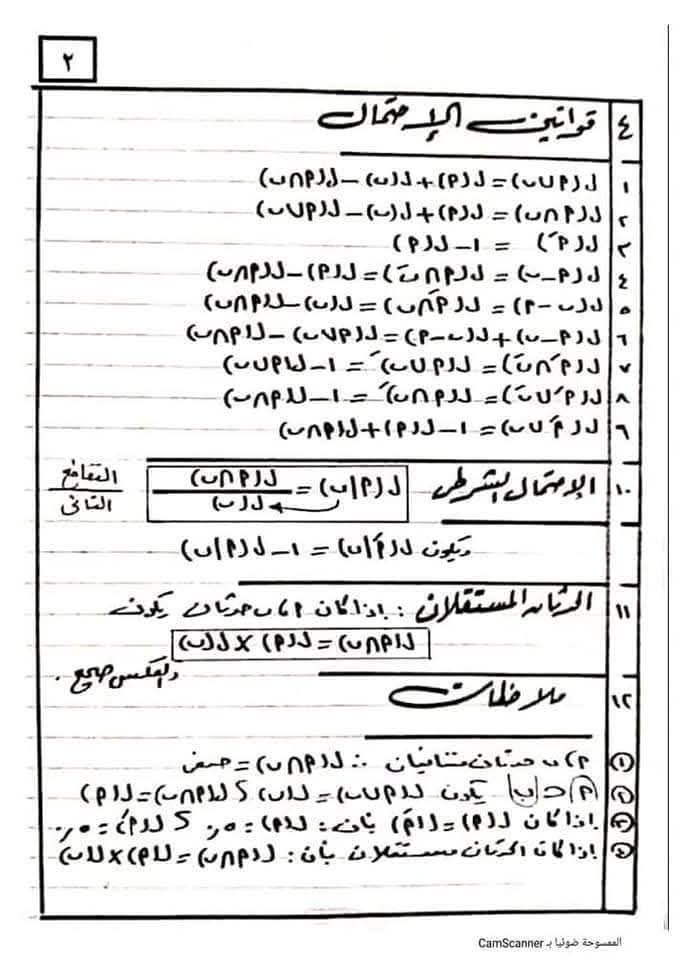 ٢
٤ قوانين الإحتمال
١ ل(P∪ب) = ل(P) + ل(ب) − ل(P∩ب)
٢ ل(P∩ب) = ل(P) + ل(ب) − ل(P∪ب)
٣ ل(Ṕ) = ١ − ل(P)
٤ ل(P−ب) = ل(P∩ب́) = ل(P) − ل(P∩ب)
٥ ل(ب−P) = ل(Ṕ∩ب) = ل(ب) − ل(P∩ب)
٦ ل(P−ب) + ل(ب−P) = ل(P∪ب) − ل(P∩ب)
٧ ل(Ṕ∩ب́) = ل(P∪ب)́ = ١ − ل(P∪ب)
٨ ل(Ṕ∪ب́) = ل(P∩ب)́ = ١ − ل(P∩ب)
٩ ل(Ṕ∪ب) = ١ − ل(P) + ل(P∩ب)
١٠ الإحتمال الشرطى ل(P|ب) = ل(P∩ب) / ل(ب) التقاطع / الثانى
ويكون ل(Ṕ|ب) = ١ − ل(P|ب)
١١ الحدثان المستقلان : إذا كان P ، ب حدثان يكون
ل(P∩ب) = ل(P) × ل(ب)
والعكس صحيح .
١٢ ملاحظات
① P ، ب حدثان متنافيان ∴ ل(P∩ب) = صفر
② P ⊂ ب يكون ل(P∪ب) = ل(ب) ، ل(P∩ب) = ل(P)
③ إذا كان ل(P) = ل(Ṕ) فإن : ل(P) = ٥ر. ، ل(Ṕ) = ٥ر.
④ إذا كان الحدثان مستقلان فإن : ل(P∩ب) = ل(P) × ل(ب)
الممسوحة ضوئيا بـ CamScanner